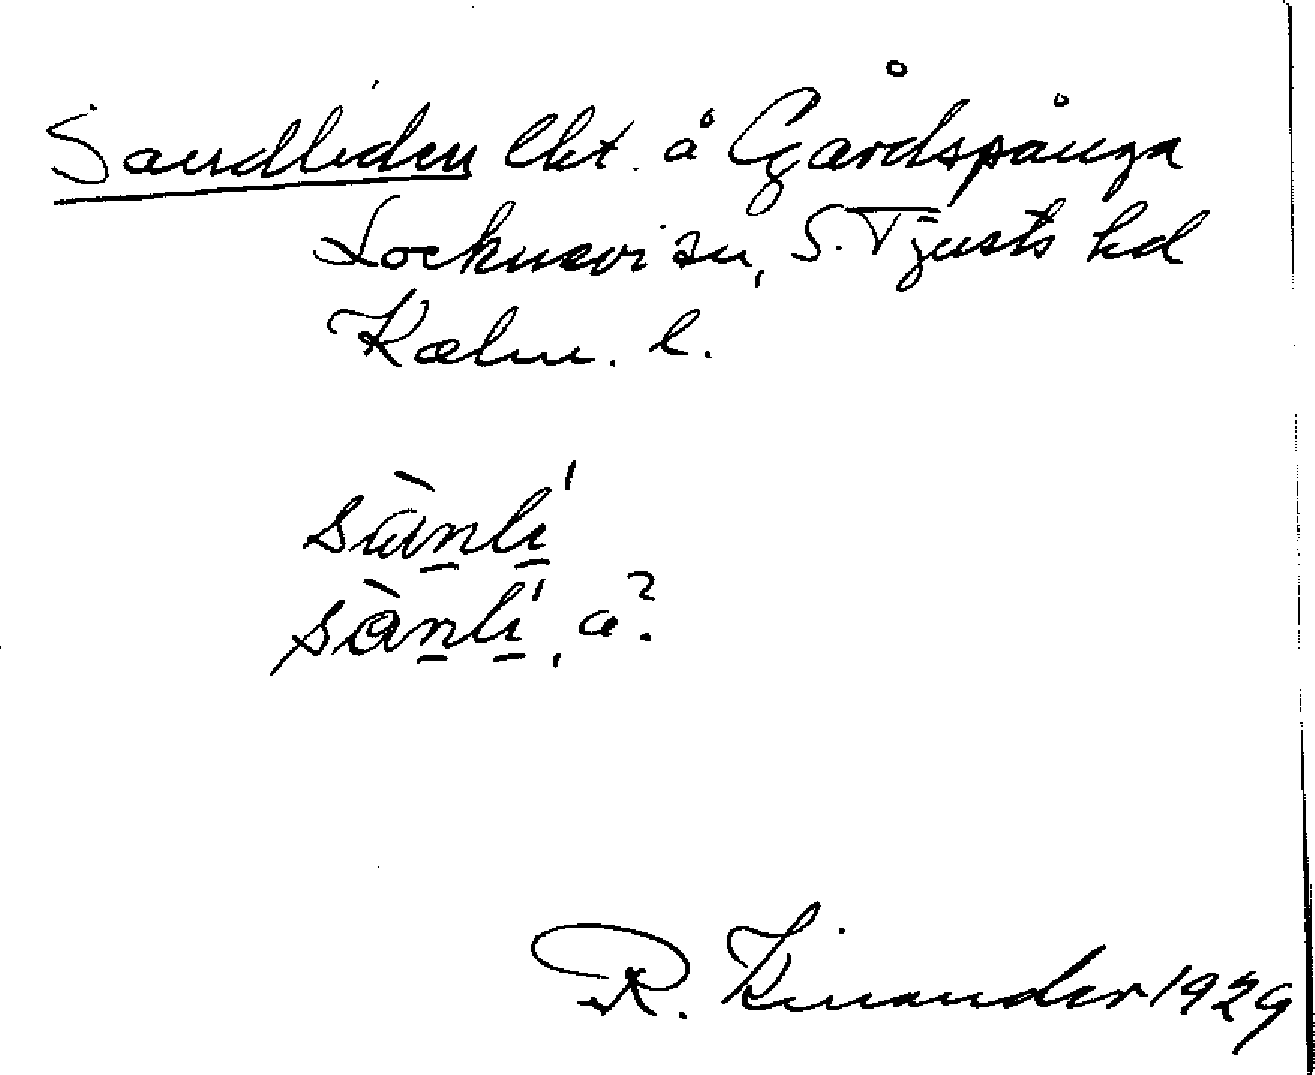 Sandliden lht. å Gårdspånga
Locknevi sn, S. Tjusts hd
Kalm. l.
sànlí
sànlí, a?
R. Kinander 1929